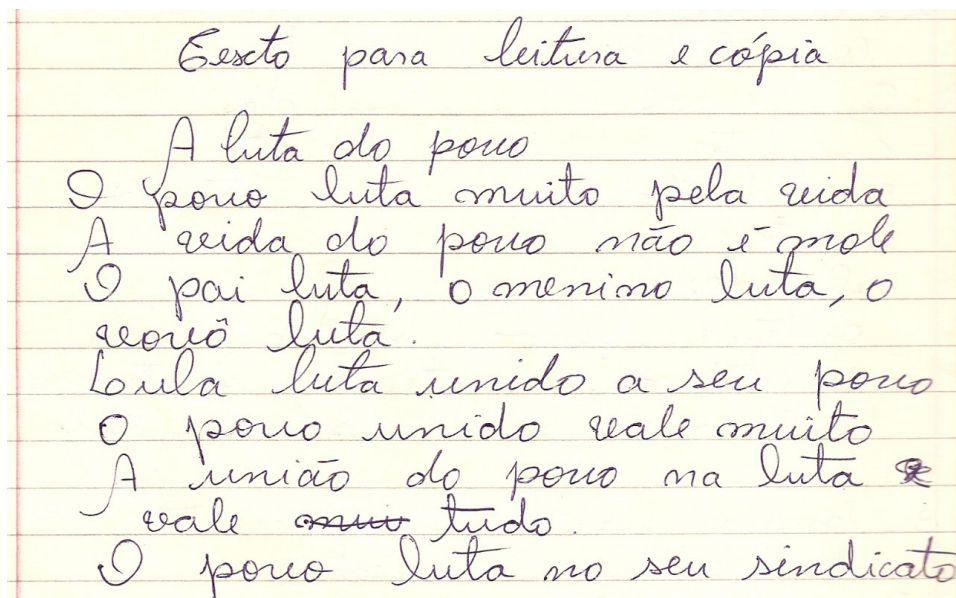 Texto para leitura e cópia
A luta do povo
O povo luta muito pela vida
A vida do povo não é mole
O pai luta, o menino luta, o
vovô luta.
Lula luta unido a seu povo
O povo unido vale muito
A união do povo na luta
vale muu tudo.
O povo luta no seu sindicato